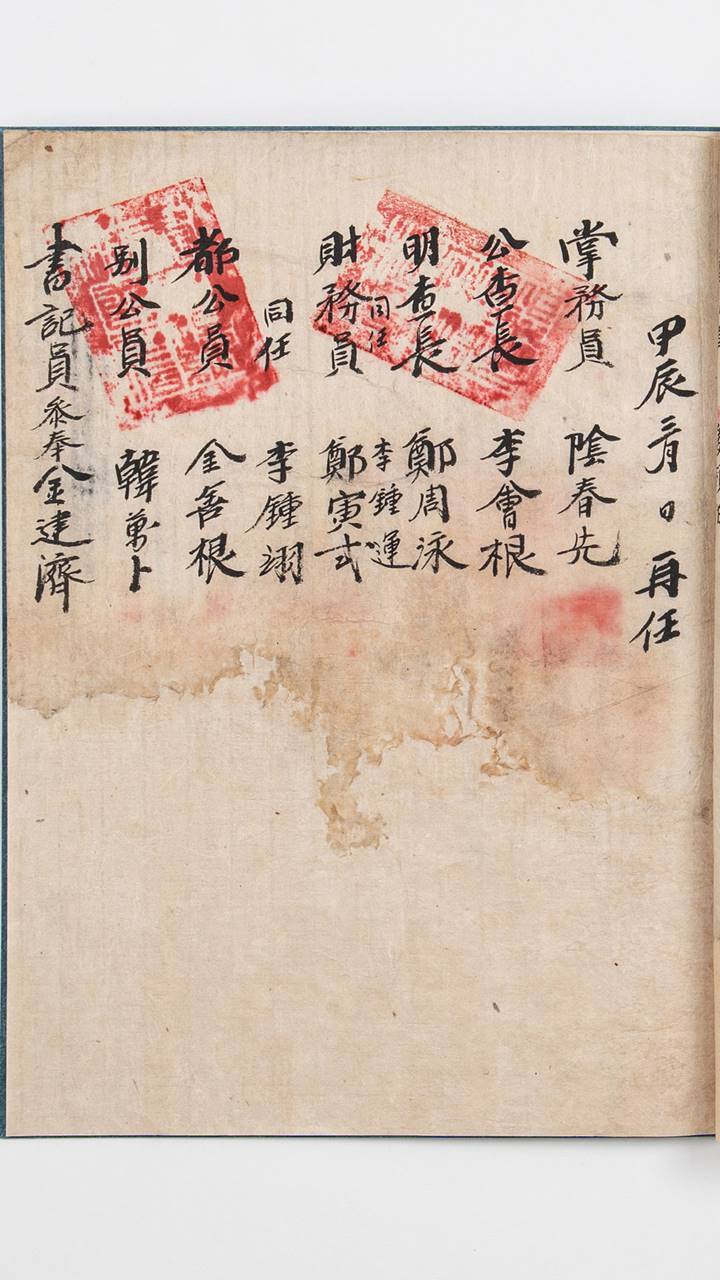 甲辰三月 日 再任
掌務員 陰春先
公查長 李會根
明查長 鄭周泳
同任 李鍾運
財務員 鄭寅弍
同任 李鍾翊
都公員 金善根
別公員 韓萬卜
書記員 叅奉 金建濟